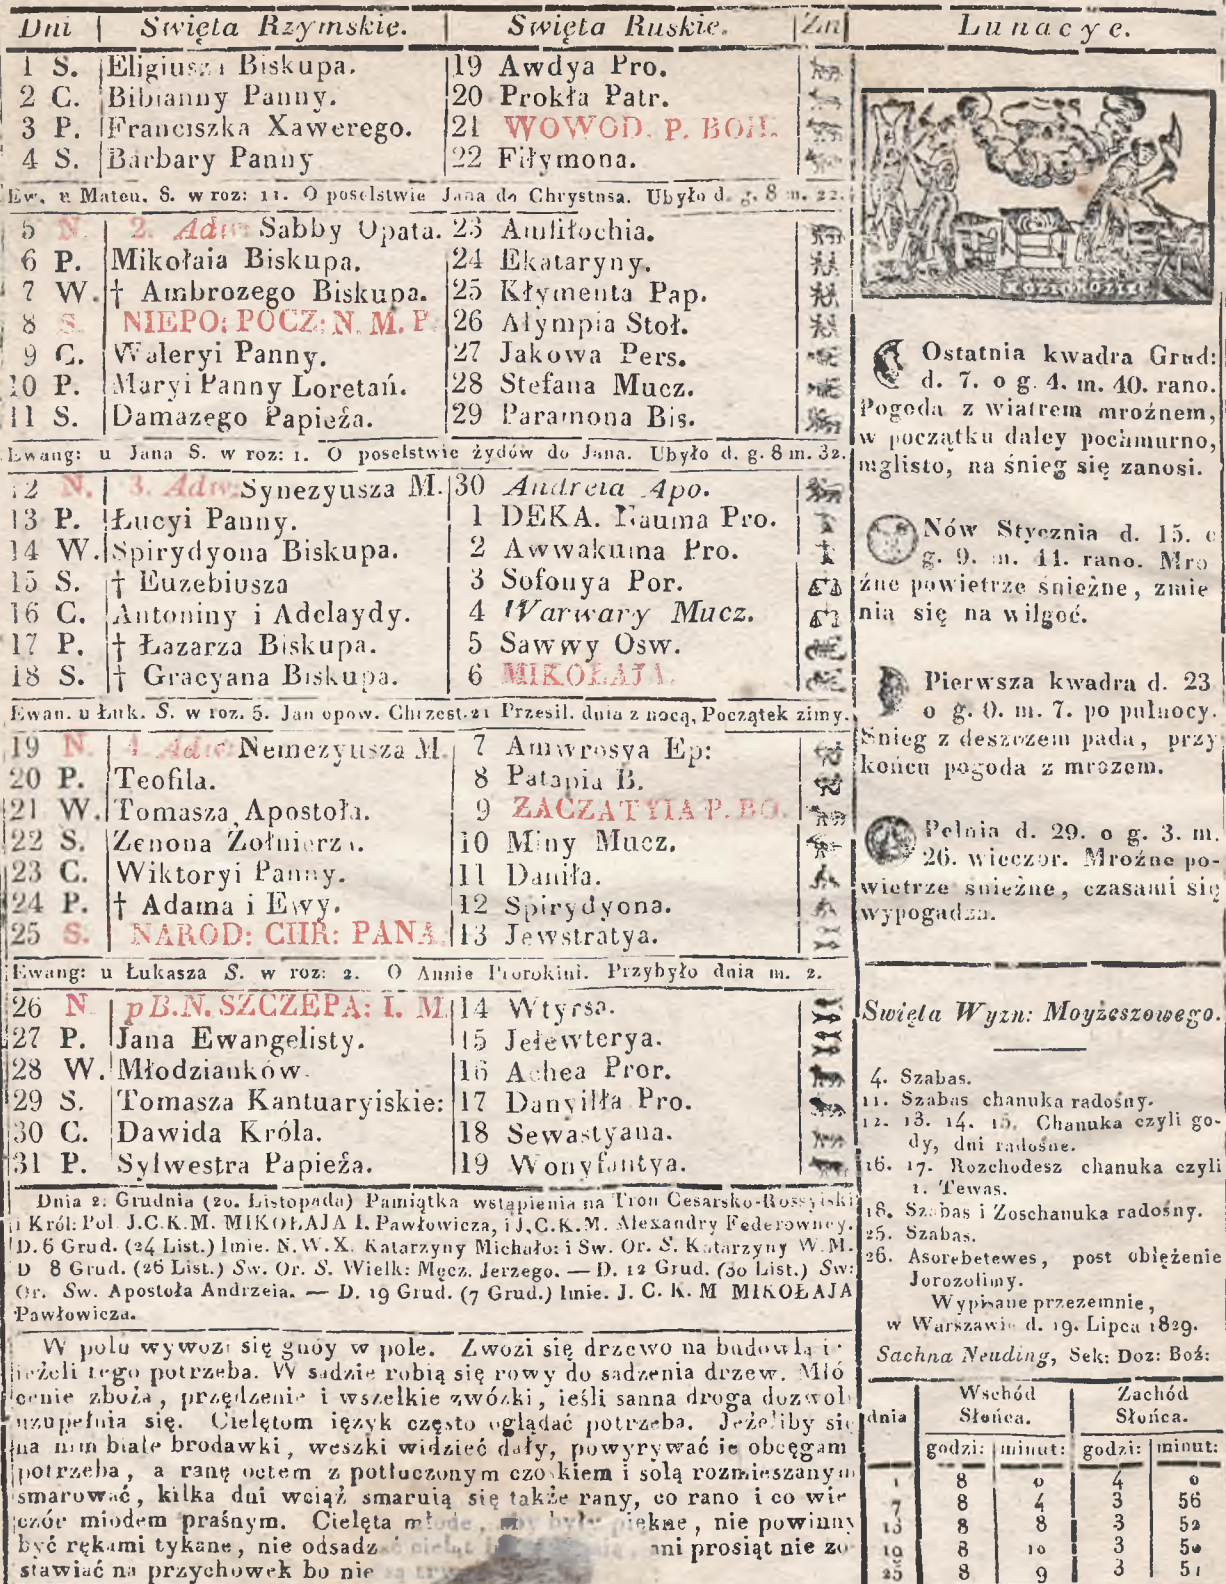 Dni | Swięta Rzymskie. | Swięta Ruskie. | Zn
1 S. Eligiusza Biskupa. 19 Awdya Pro.
2 C. Bibianny Panny. 20 Prokła Patr.
3 P. Franciszka Xawerego. 21 WOWOD. P. BOH.
4 S. Barbary Panny 22 Fiłymona.
Ew. u Mateu. S. w roz: 11. O poselstwie Jana do Chrystusa. Ubyło d. g. 8 m. 22.
5 N. 2. Adw: Sabby Opata. 23 Amfiłochia.
6 P. Mikołaia Biskupa. 24 Ekataryny.
7 W. † Ambrozego Biskupa. 25 Kłymenta Pap.
8 S. NIEPO: POCZ: N. M. P. 26 Ałympia Stoł.
9 C. Waleryi Panny. 27 Jakowa Pers.
10 P. Maryi Panny Loretań. 28 Stefana Mucz.
11 S. Damazego Papieża. 29 Paramona Bis.
Ewang: u Jana S. w roz: 1. O poselstwie żydów do Jana. Ubyło d. g. 8 m. 32.
12 N. 3. Adw: Synezyusza M. 30 Andreia Apo.
13 P. Łucyi Panny. 1 DEKA. Nauma Pro.
14 W. Spirydyona Biskupa. 2 Awwakuma Pro.
15 S. † Euzebiusza 3 Sofonya Por.
16 C. Antoniny i Adelaydy. 4 Warwary Mucz.
17 P. † Łazarza Biskupa. 5 Sawwy Osw.
18 S. † Gracyana Biskupa. 6 MIKOŁAJA.
Ewan. u Łuk. S. w roz. 5. Jan opow. Chrzest. 21 Przesil. dnia z nocą, Początek zimy.
19 N. 4. Adw: Nemezyusza M. 7 Amwrosya Ep:
20 P. Teofila. 8 Patapia B.
21 W. Tomasza Apostoła. 9 ZACZATYIA P. BO.
22 S. Zenona Żołnierza. 10 Miny Mucz.
23 C. Wiktoryi Panny. 11 Daniła.
24 P. † Adama i Ewy. 12 Spirydyona.
25 S. NAROD: CHR: PANA 13 Jewstratya.
Ewang: u Łukasza S. w roz: 2. O Annie Prorokini. Przybyło dnia m. 2.
26 N p B.N. SZCZEPA: I. M 14 Wtyrsa.
27 P. Jana Ewangelisty. 15 Jełewterya.
28 W. Młodzianków. 16 Achea Pror.
29 S. Tomasza Kantuaryiskie: 17 Danyiłła Pro.
30 C. Dawida Króla. 18 Sewastyana.
31 P. Sylwestra Papieża. 19 Wonyfantya.
Dnia 2. Grudnia (20. Listopada) Pamiątka wstąpienia na Tron Cesarsko-Rossyiski
i Król: Pol. J.C.K.M. MIKOŁAJA I. Pawłowicza, i J.C.K.M. Alexandry Federowney.
D. 6 Grud. (24 List.) Imie. N. W. X. Katarzyny Michało: i Sw. Or. S. Katarzyny W. M.
D 8 Grud. (26 List.) Sw. Or. S. Wielk: Męcz. Jerzego. — D. 12 Grud. (30 List.) Sw:
Or. Sw. Apostoła Andrzeia. — D. 19 Grud. (7 Grud.) Imie. J. C. K. M MIKOŁAJA
Pawłowicza.
W polu wywozi się gnóy w pole. Zwozi się drzewo na budowlą i
ieżeli tego potrzeba. W sadzie robią się rowy do sadzenia drzew. Mló
cenie zboża, przędzenie i wszelkie zwózki, ieśli sanna droga dozwoli
uzupełnia się. Cielętom ięzyk często oglądać potrzeba. Jeżeliby się
na nim białe brodawki, weszki widzieć dały, powyrywać ie obcęgam
potrzeba, a ranę octem z potłuczonym czosnkiem i solą rozmieszanym
smarować, kilka dni wciąż smaruią się także rany, co rano i co wie
czór miodem praśnym. Cielęta młode, aby były piękne, nie powinny
być rękami tykane, nie odsadzać cieląt ani prosiąt nie zo
stawiać na przychowek bo nie są
Lunacye.
KOZIOROZIEC
Ostatnia kwadra Grud:
d. 7. o g. 4. m. 40. rano.
Pogoda z wiatrem mroźnem,
w początku daley pochmurno,
mglisto, na śnieg się zanosi.
Nów Stycznia d. 15. o
g. 9. m. 41. rano. Mro
źne powietrze śnieżne, zmie
nia się na wilgoć.
Pierwsza kwadra d. 23
o g. 0. m. 7. po pułnocy.
Śnieg z deszczem pada, przy
końcu pogoda z mrozem.
Pełnia d. 29. o g. 3. m.
26. wieczor. Mroźne po-
wietrze śnieżne, czasami się
wypogadza.
Swięta Wyzn: Moyżeszowego.
4. Szabas.
11. Szabas chanuka radośny.
12. 13. 14. 15. Chanuka czyli go-
dy, dni radośne.
16. 17. Rozchodesz chanuka czyli
1. Tewas.
18. Szabas i Zoschanuka radośny.
25. Szabas.
26. Asorebetewes, post obiężenie
Jorozolimy.
Wypisane przezemnie,
w Warszawie d. 19. Lipca 1829.
Sachna Neuding, Sek: Doz: Boż:
dnia | Wschód Słońca. | Zachód Słońca.
godzi: | minut: | godzi: | minut:
1 8 0 4 0
7 8 4 3 56
13 8 8 3 52
19 8 10 3 50
25 8 9 3 51